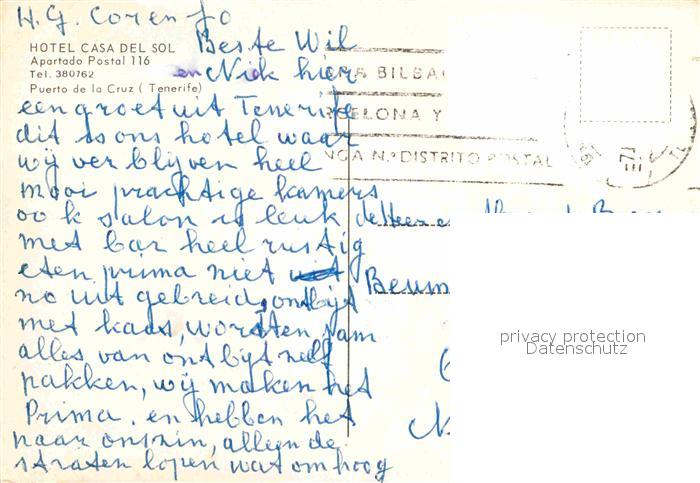 H.G. Coren Jo
HOTEL CASA DEL SOL
Apartado Postal 116
Tel. 380762
Puerto de la Cruz ( Tenerife)
Beste Wil
en Nick hier
een groet uit Tenerife
dit is ons hotel waar
wij ver blijven heel
mooi prachtige kamers
oo k salon is leuk
met bar heel rustig
eten prima niet
no uit gebreid, ontbijt
met kaas, worsten
alles van ontbijt zelf
pakken, wij maken het
Prima. en hebben het
naar onszin, alleen de
straten lopen wat omhoog
BILBA
ELONA Y
NGA N.º DISTRITO POSTAL
de Heer e
privacy protection
Datenschutz